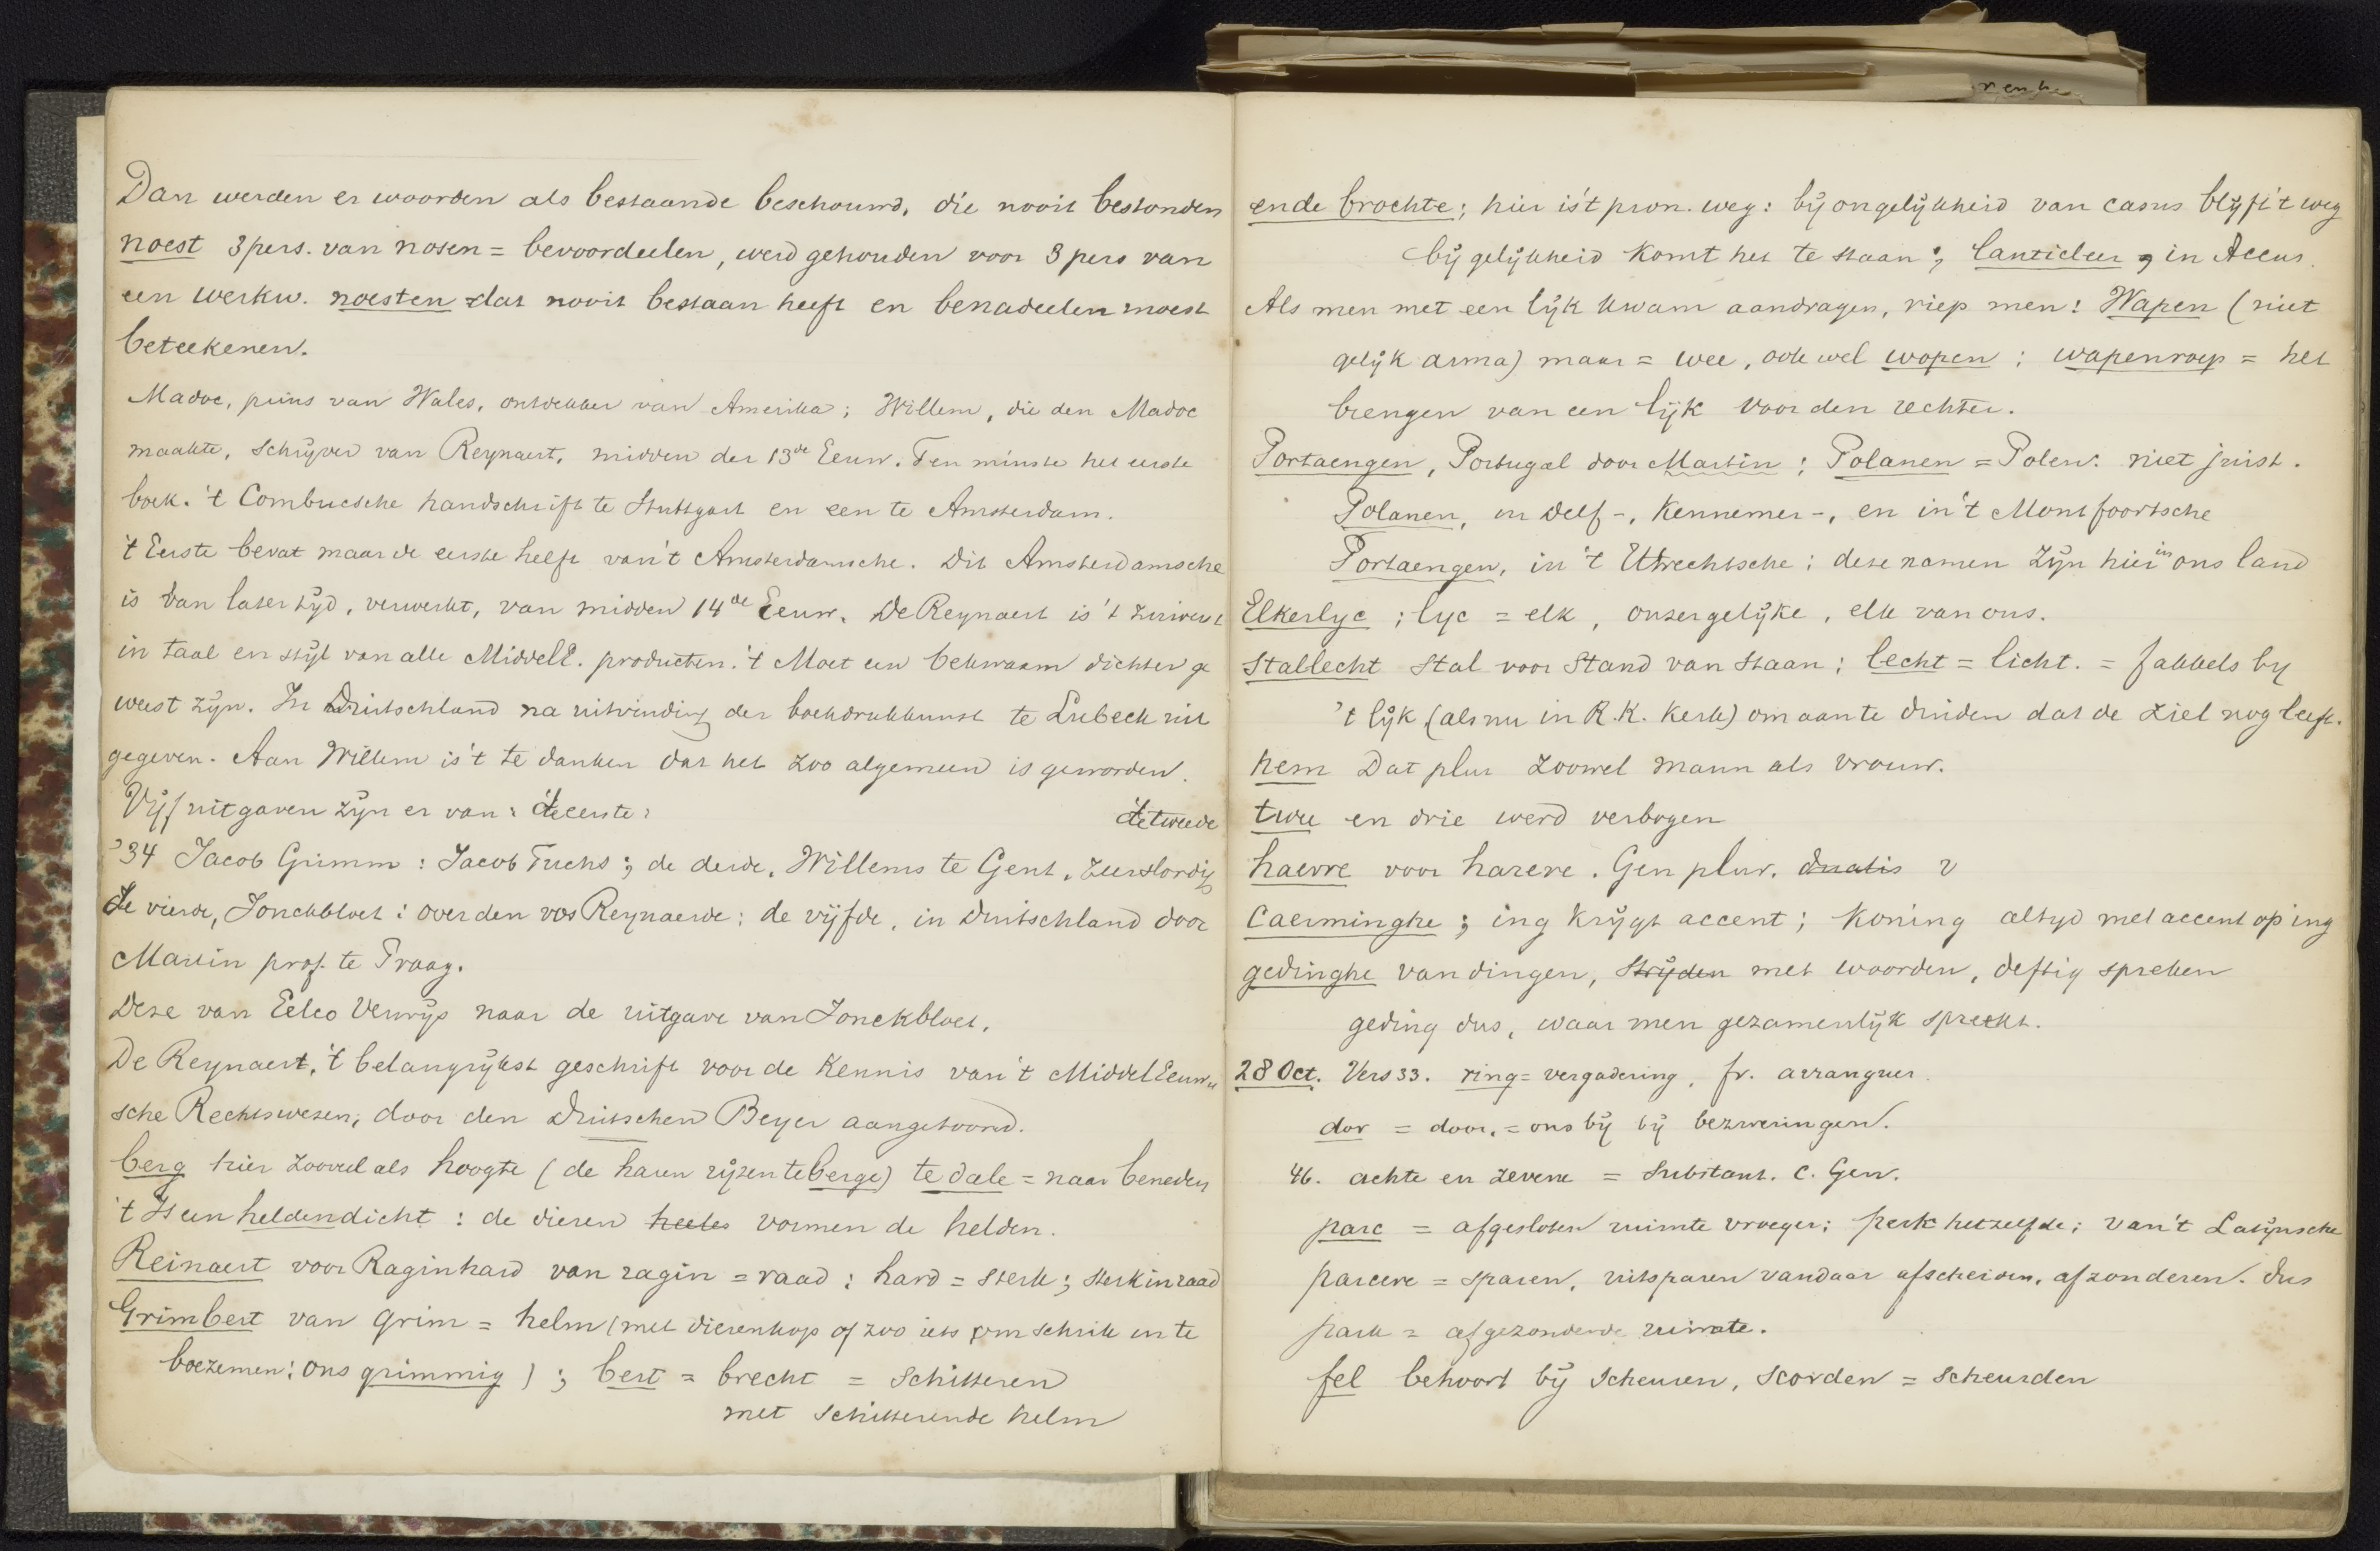 Dan werden er woorden als bestaande beschouwd, die nooit bestonden
noest 3 pers. van nosen = bevoordeelen, werd gehouden voor 3 pers van
een werkw. noesten dat nooit bestaan heeft en benadeelen moest
beteekenen.
Madoc, prins van Wales, ontdekker van Amerika; Willem, die den Madoc
maakte, schrijver van Reynaert, midden der 13de Eeuw. Ten minste het eerste
boek. 't Combucsche handschrift te Stuttgart en een te Amsterdam.
't Eerste bevat maar de eerste helft van 't Amsterdamsche. Dit Amsterdamsche
is van later tijd, verwerkt, van midden 14de Eeuw. De Reynaert is 't zuiverst
in taal en stijl van alle MiddelE. producten. 't Moet een bekwaam dichter ge
weest zijn. In Duitschland na uitvinding der boekdrukkunst te Lubeck uit
gegeven. Aan Willem is 't te danken dat het zoo algemeen is geworden.
Vijf uitgaven zijn er van: de eerste: de tweede
'34 Jacob Grimm: Jacob Fuchs; de derde, Willems te Gent, zeer slordig
de vierde, Jonckbloet: over den vos Reynaerde; de vijfde, in Duitschland door
Martin prof. te Praag.
Deze van Eelco Verwijs naar de uitgave van Jonckbloet.
De Reynaert, 't belangrijkst geschrift voor de kennis van 't MiddelEeuw
sche Rechtswezen, door den Duitschen Beyer aangetoond.
berg hier zooveel als hoogte (de haren rijzen te berge) te dale = naar beneden
't Is een heldendicht: de dieren heeles vormen de helden.
Reinaert voor Raginhard van ragin = raad; hard = sterk; sterk in raad
Grimbert van Grim = helm (met dierenkop of zoo iets om schrik in te
boezemen: ons grimmig); bert = brecht = schitteren
met schitterende helm
ende brochte; hier is 't pron. weg: bij ongelijkheid van casus blijft 't weg
bij gelijkheid komt het te staan; Canticleer, in Accus.
Als men met een lijk kwam aandragen, riep men: Wapen (niet
gelijk arma) maar = wee, ook wel wopen; wapenroep = het
brengen van een lijk voor den rechter.
Portaengen, Portugal door Martin; Polanen = Polen. niet juist.
Polanen, in Delf-, Kennemer-, en in 't Montfoortsche
Portaengen, in 't Utrechtsche; deze namen zijn hier in ons land
Elkerlyc; lyc = elk, onzergelijke, elk van ons.
Stallecht stal voor stand van staan; lecht = licht. = fakkels by
't lijk (als nu in R.K. Kerk) om aan te duiden dat de ziel nog leeft.
hem Dat plur zoowel mann als vrouw.
twee en drie werd verbogen
haerre voor harere. Gen plur. dualis v
Caerminghe; ing krijgt accent; koning altyd met accent op ing
gedinghe van dingen, strijden met woorden, deftig spreken
geding dus, waar men gezamenlijk spreekt.
28 Oct. Vers 33. ring = vergadering, fr. arranguer
dor = door, = ons bij bij bezweringen.
46. achte en zevene = Substant. c. Gen.
parc = afgesloten ruimte vroeger; perk hetzelfde; van 't Latijnsche
parcere = sparen, uitsparen vandaar afscheiden, afzonderen. dus
park = afgezonderde ruimte.
fel behoort bij scheuren, scorden = scheurden